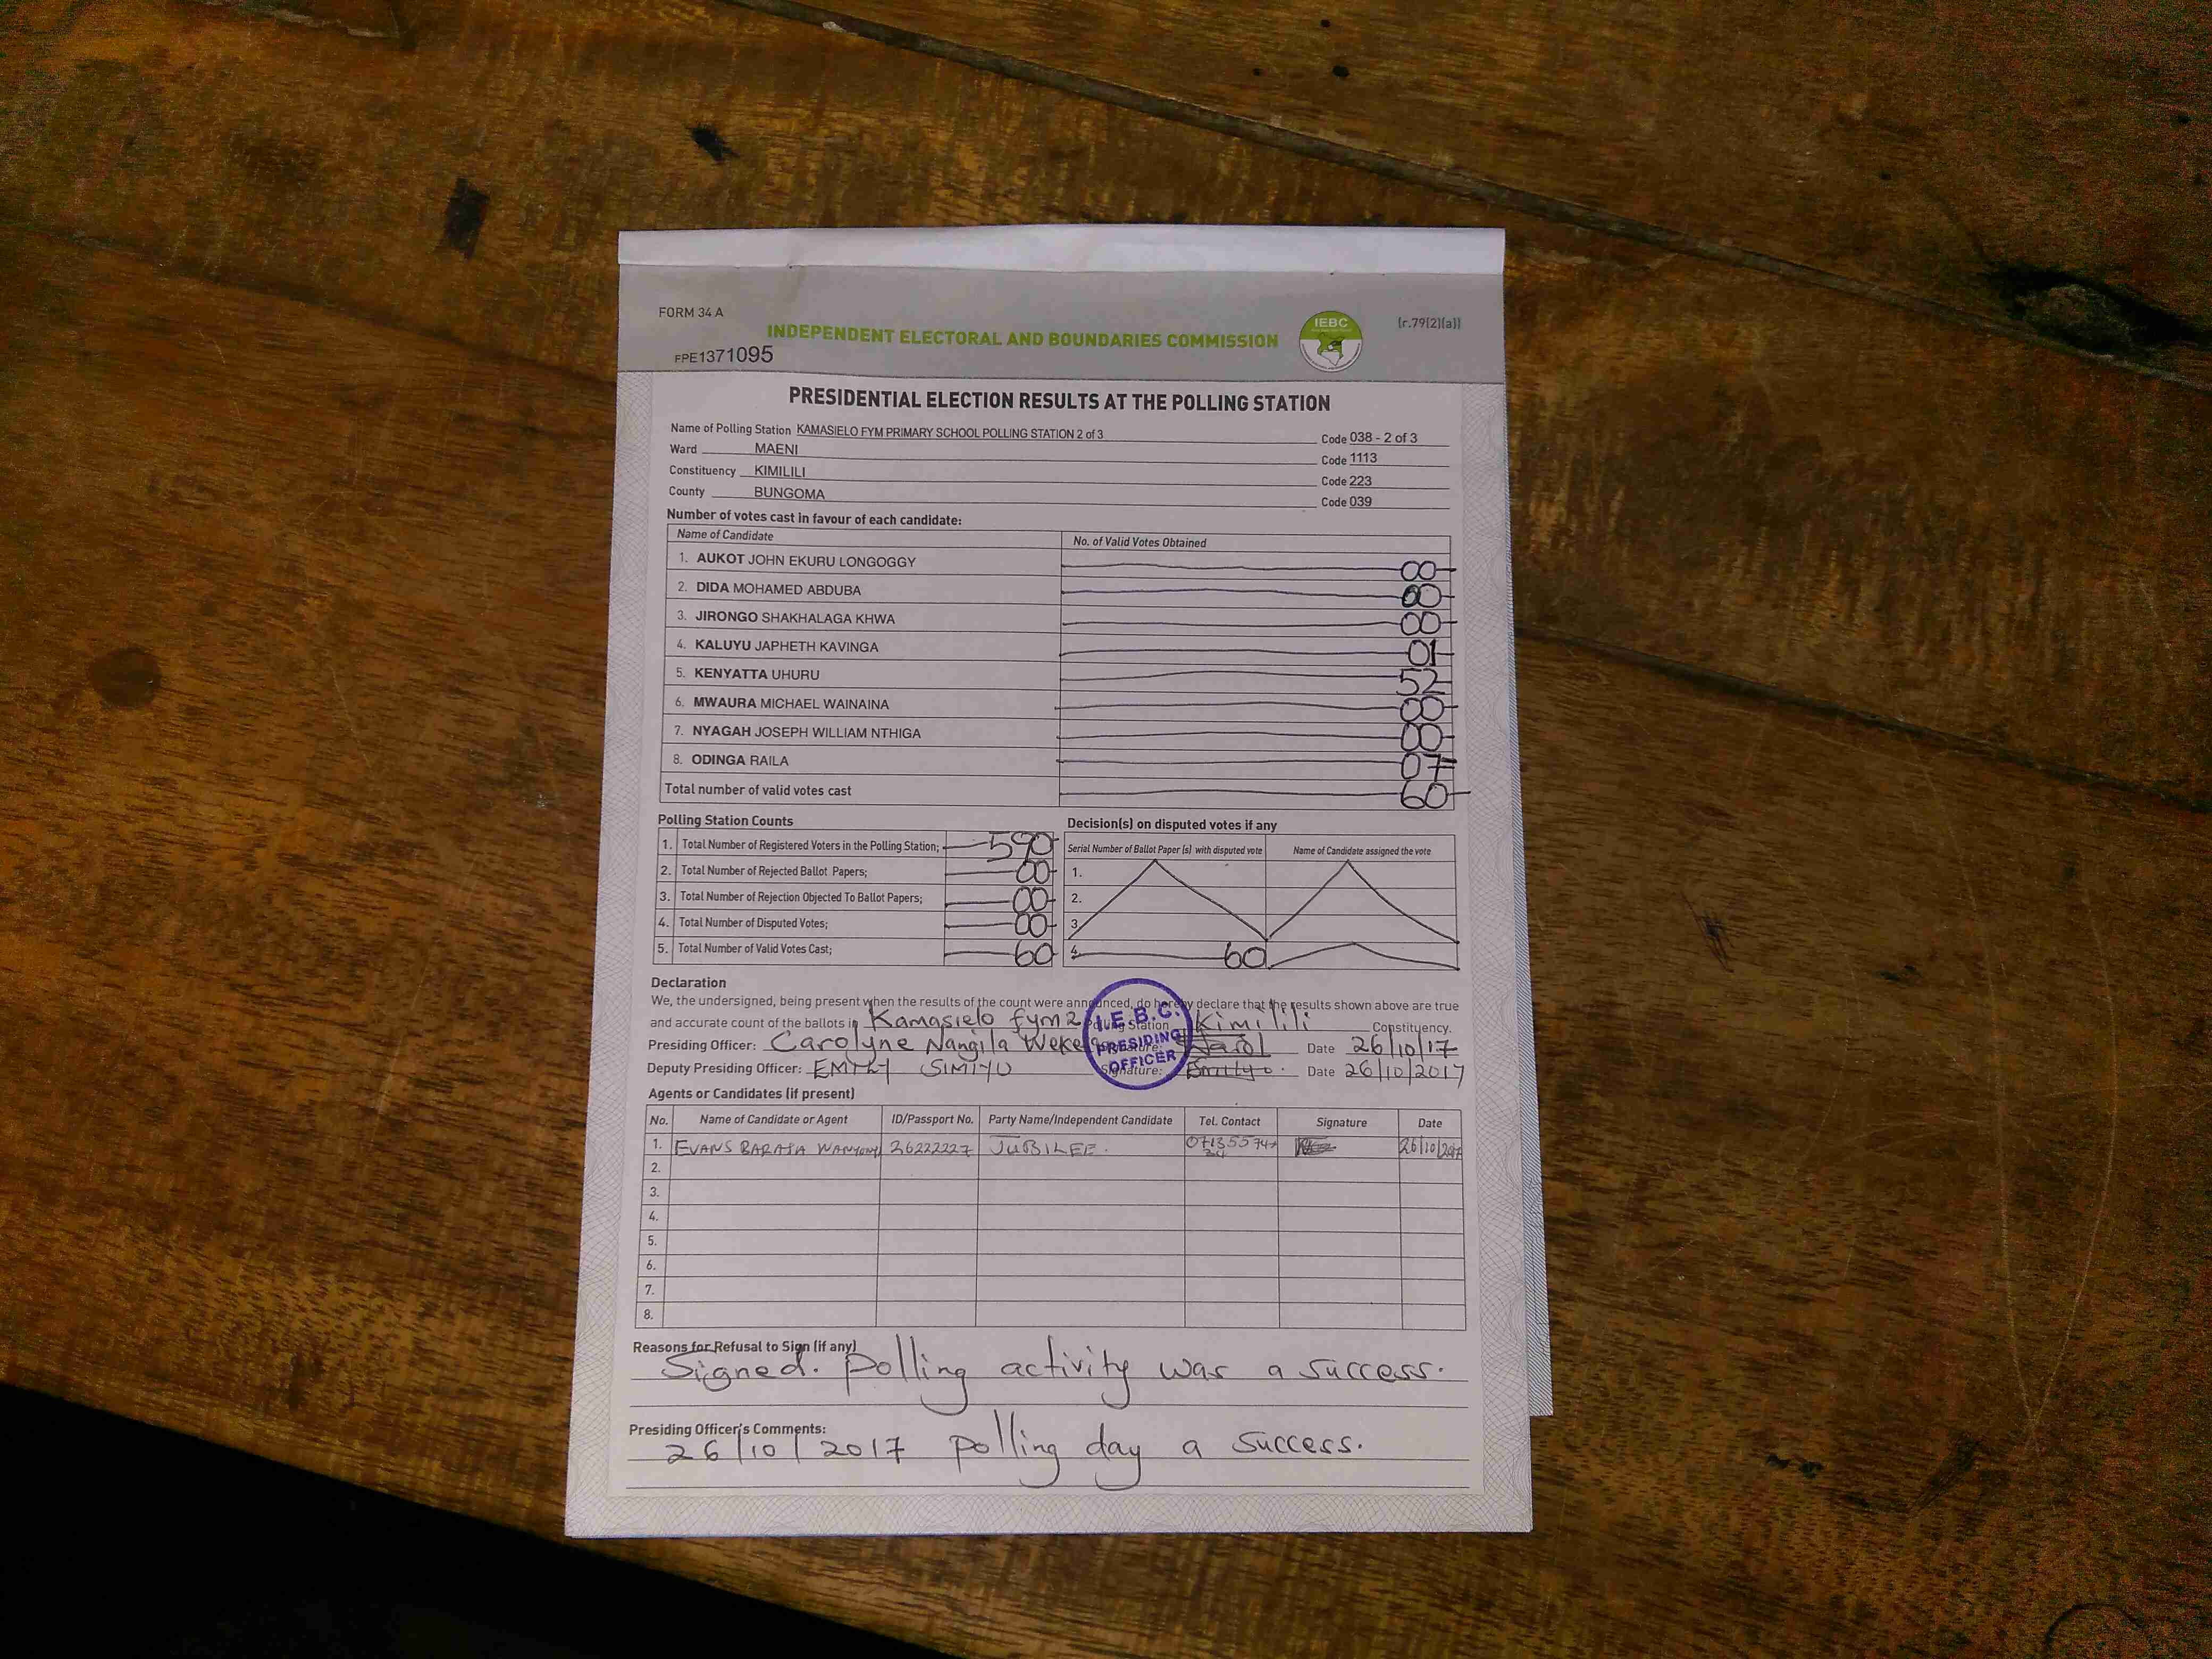 FORM 34 A
INDEPENDENT ELECTORAL AND BOUNDARIES COMMISSION
IEBC
(r.79(2)(a))
FPE1371095
PRESIDENTIAL ELECTION RESULTS AT THE POLLING STATION
Name of Polling Station KAMASIELO FYM PRIMARY SCHOOL POLLING STATION 2 of 3 Code 038 - 2 of 3
Ward MAENI Code 1113
Constituency KIMILILI Code 223
County BUNGOMA Code 039
Number of votes cast in favour of each candidate:
Name of Candidate No. of Valid Votes Obtained
1. AUKOT JOHN EKURU LONGOGGY 00
2. DIDA MOHAMED ABDUBA 00
3. JIRONGO SHAKHALAGA KHWA 00
4. KALUYU JAPHETH KAVINGA 01
5. KENYATTA UHURU 52
6. MWAURA MICHAEL WAINAINA 00
7. NYAGAH JOSEPH WILLIAM NTHIGA 00
8. ODINGA RAILA 07
Total number of valid votes cast 60
Polling Station Counts
1. Total Number of Registered Voters in the Polling Station; 590
2. Total Number of Rejected Ballot Papers; 00
3. Total Number of Rejection Objected To Ballot Papers; 00
4. Total Number of Disputed Votes; 00
5. Total Number of Valid Votes Cast; 60
Decision(s) on disputed votes if any
Serial Number of Ballot Paper (s) with disputed vote Name of Candidate assigned the vote
1.
2.
3
4. 60
Declaration
We, the undersigned, being present when the results of the count were announced, do hereby declare that the results shown above are true
and accurate count of the ballots in Kamasielo fym 2 Polling Station Kimilili Constituency.
Presiding Officer: Carolyne Nangila Signature: Date 26/10/17
Deputy Presiding Officer: EMILY SIMIYU Signature: Emily Date 26/10/2017
I.E.B.C.
PRESIDING
OFFICER
Agents or Candidates (if present)
No. Name of Candidate or Agent ID/Passport No. Party Name/Independent Candidate Tel. Contact Signature Date
1. EVANS BARASA WANYONYI 26222227 JUBILEE. 26/10/2017
2.
3.
4.
5.
6.
7.
8.
Reasons for Refusal to Sign (if any)
Signed. Polling activity was a success.
Presiding Officer's Comments:
26/10/2017 Polling day a success.